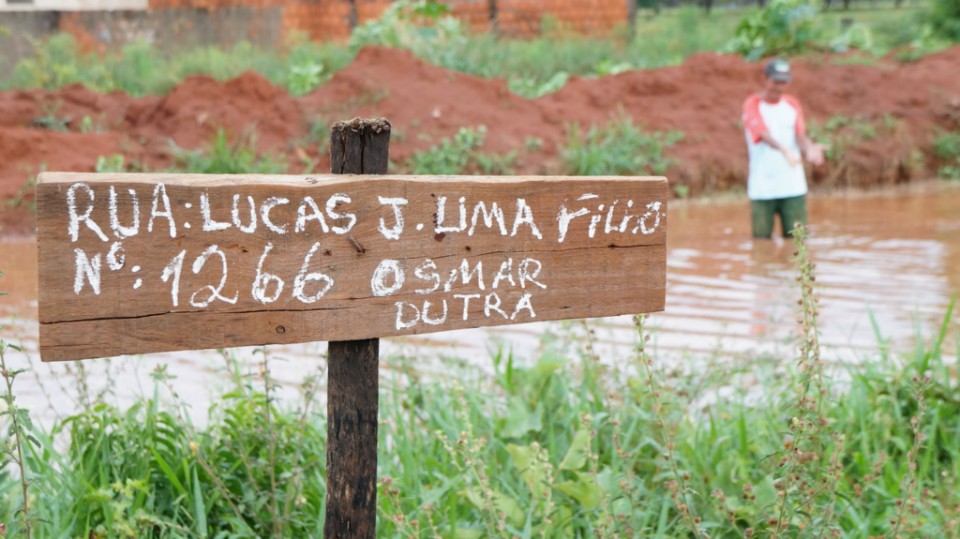 RUA: LUCAS J. LIMA FILHO
Nº: 1266 OSMAR
DUTRA